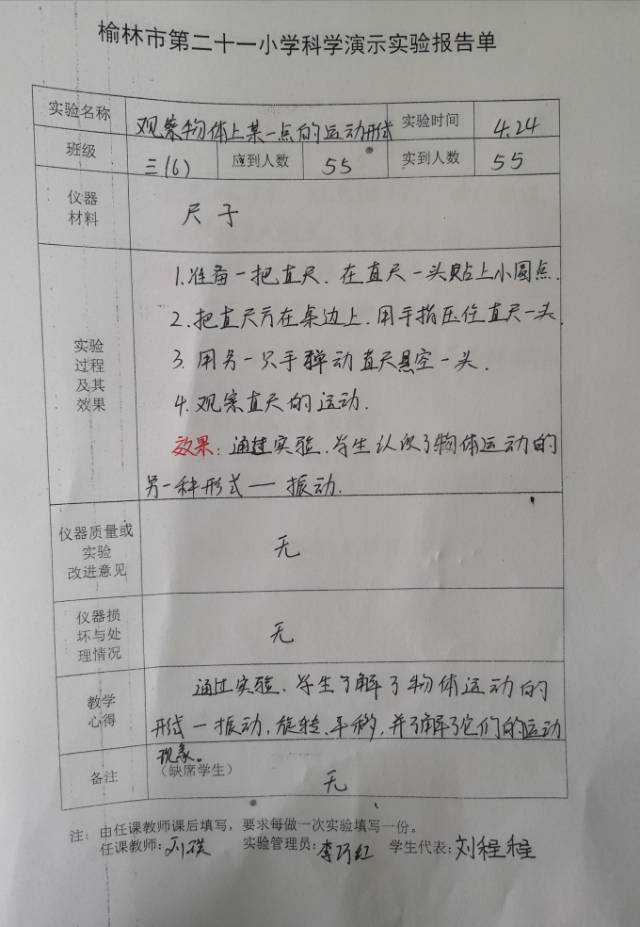 榆林市第二十一小学科学演示实验报告单
实验名称 观察物体上某一点的运动形式 实验时间 4.24
班级 三(6) 应到人数 55 实到人数 55
仪器
材料
尺子
实验
过程
及其
效果
1.准备一把直尺.在直尺一头贴上小圆点.
2.把直尺放在桌边上.用手指压住直尺一头.
3.用另一只手弹动直尺悬空一头.
4.观察直尺的运动.
效果:通过实验.学生认识了物体运动的
另一种形式—振动.
仪器质量或
实验
改进意见
无
仪器损
坏与处
理情况
无
教学
心得
通过实验.学生了解了物体运动的
形式—振动,旋转.平移,并了解了它们的运动
现象。
备注
(缺席学生)
无
注: 由任课教师课后填写,要求每做一次实验填写一份。
任课教师:刘 实验管理员:李巧红 学生代表:刘程程